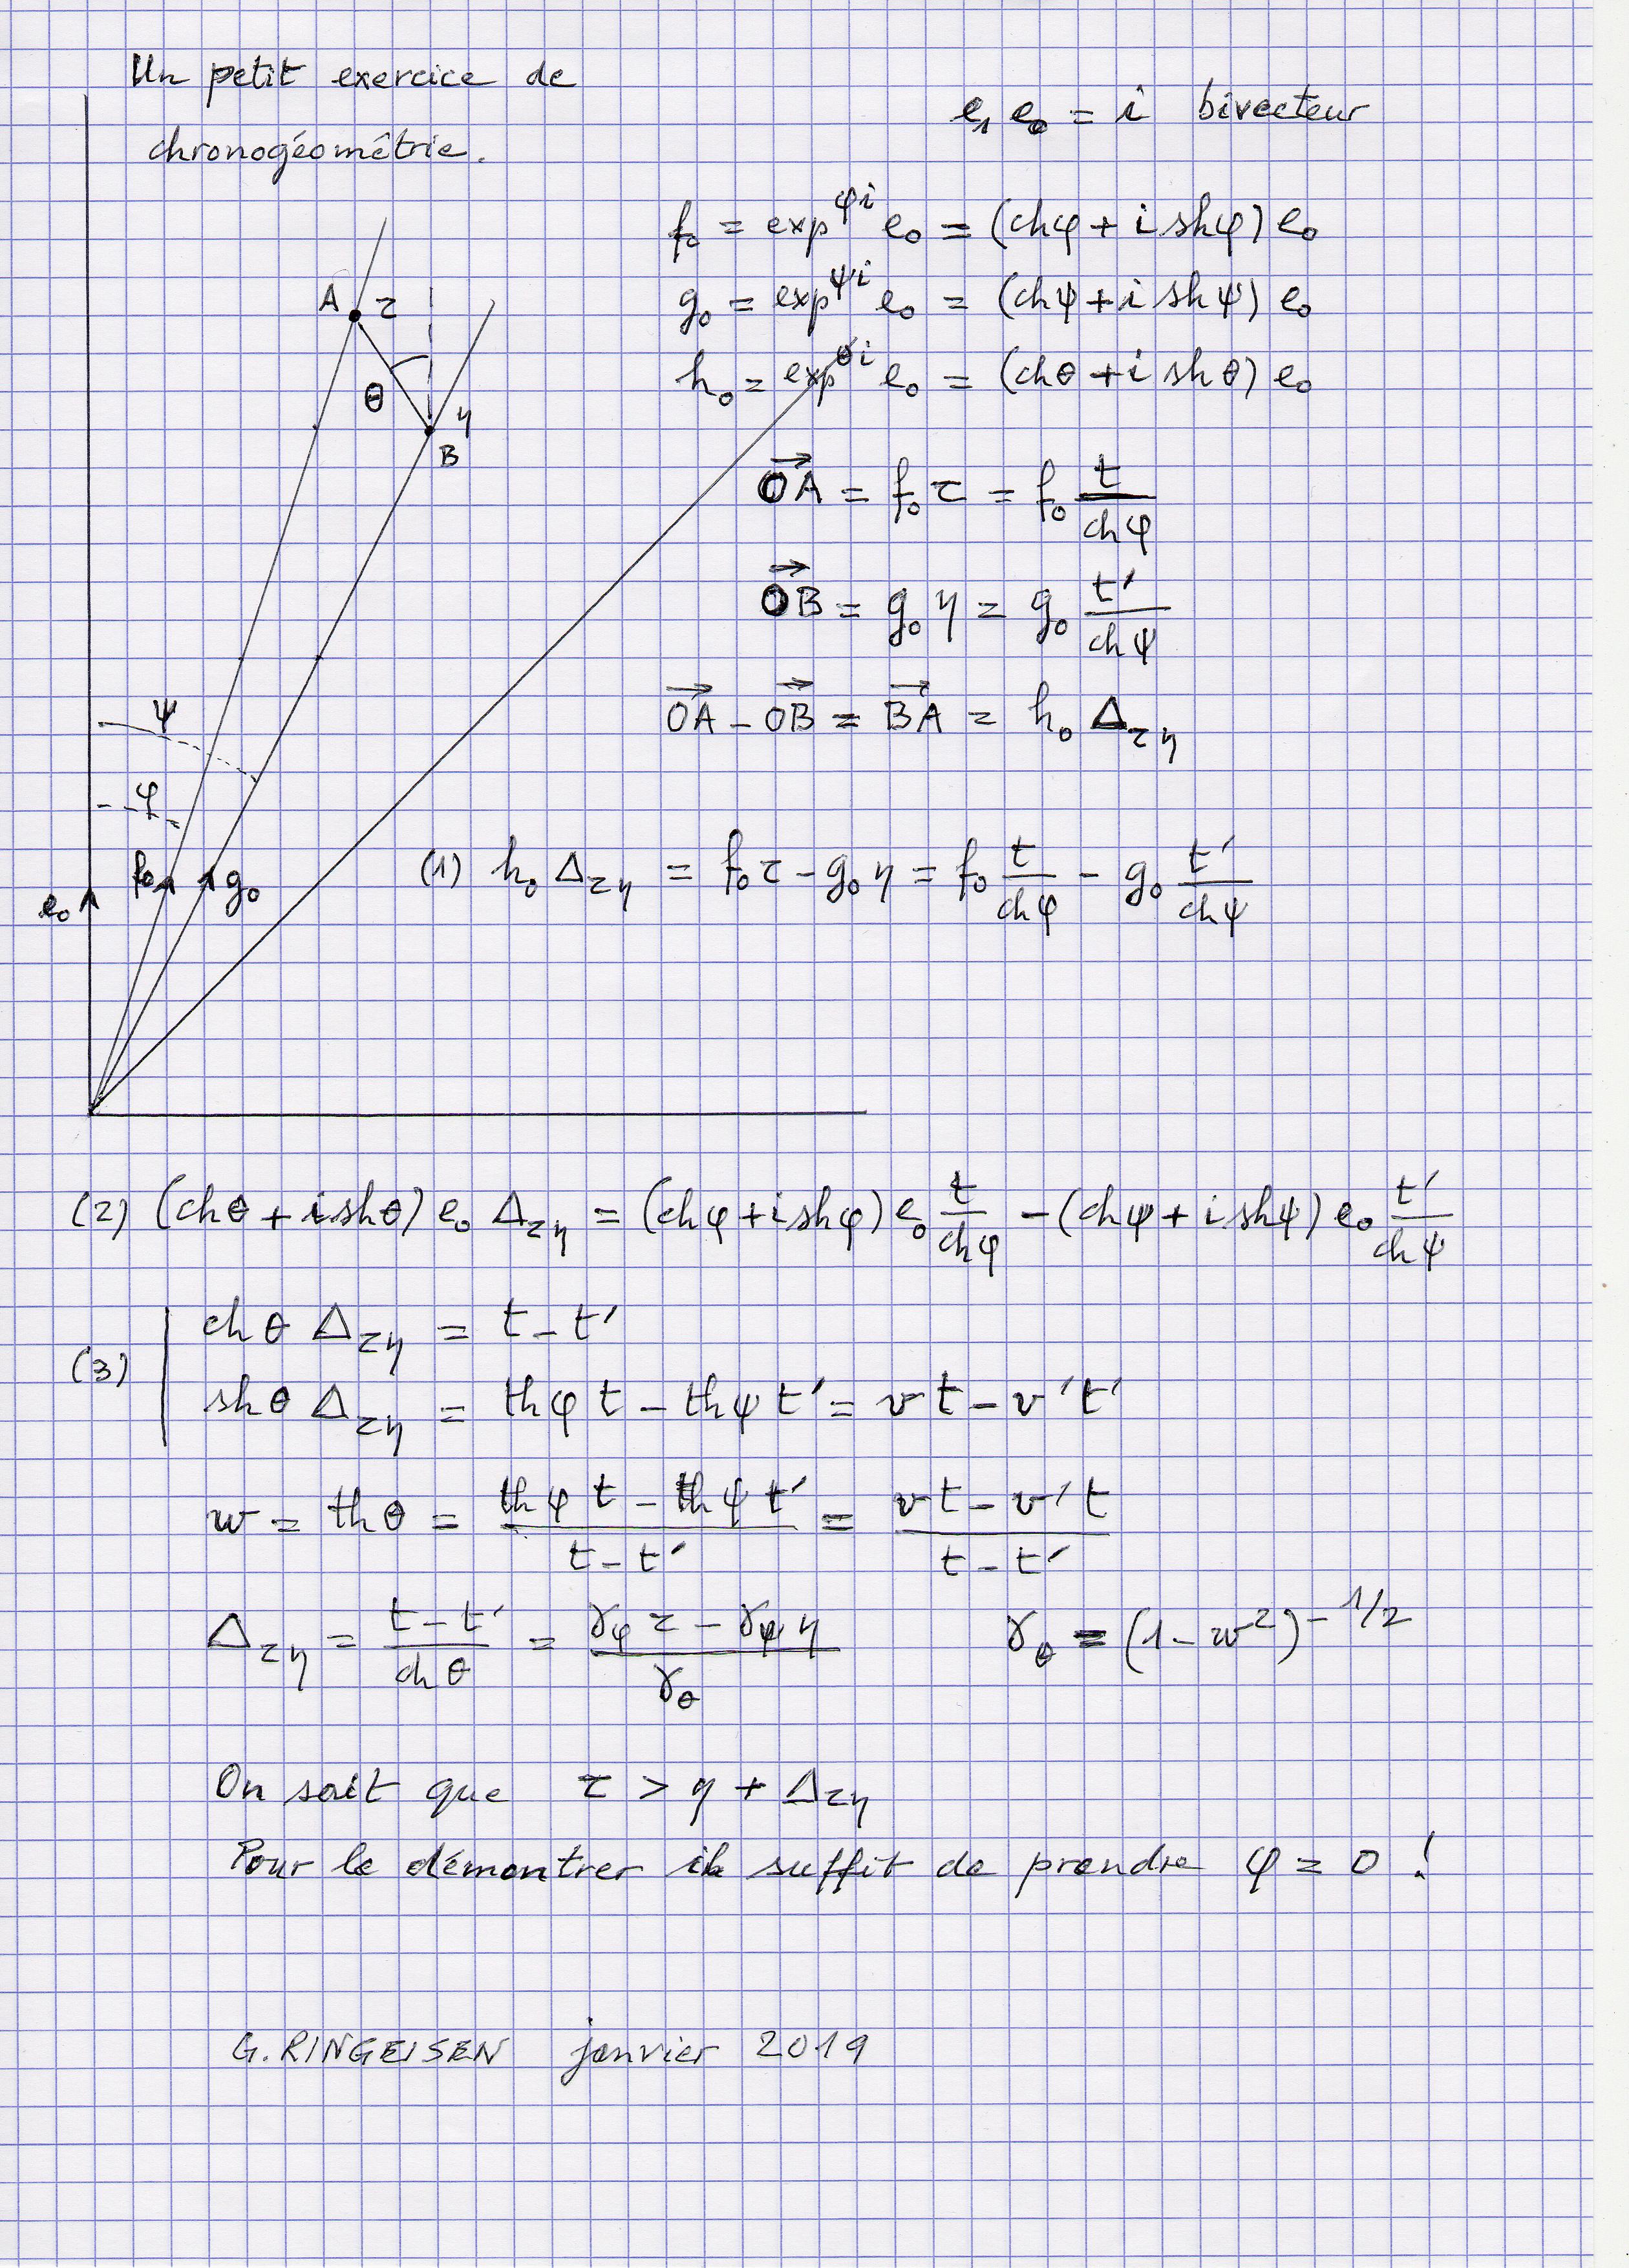 Un petit exercice de
chronogéométrie.
e₁ e₀ = i bivecteur
f₀ = exp^φi e₀ = (chφ + i shφ) e₀
g₀ = exp^ψi e₀ = (chψ + i shψ) e₀
h₀ = exp^θi e₀ = (chθ + i shθ) e₀
A τ
θ
η
B
OA = f₀ τ = f₀ t/chφ
OB = g₀ η = g₀ t'/chψ
OA - OB = BA = h₀ Δτη
ψ
φ
e₀ f₀ g₀
(1) h₀ Δτη = f₀ τ - g₀ η = f₀ t/chφ - g₀ t'/chψ
(2) (chθ + i shθ) e₀ Δτη = (chφ + i shφ) e₀ t/chφ - (chψ + i shψ) e₀ t'/chψ
(3) chθ Δτη = t - t'
shθ Δτη = thφ t - thψ t' = v t - v't'
w = thθ = (thφ t - thψ t')/(t - t') = (v t - v't)/(t - t')
Δτη = (t - t')/chθ = (γφ τ - γψ η)/γθ γθ = (1 - w²)^-1/2
On sait que τ > η + Δτη
Pour le démontrer il suffit de prendre φ = 0 !
G. RINGEISEN janvier 2019